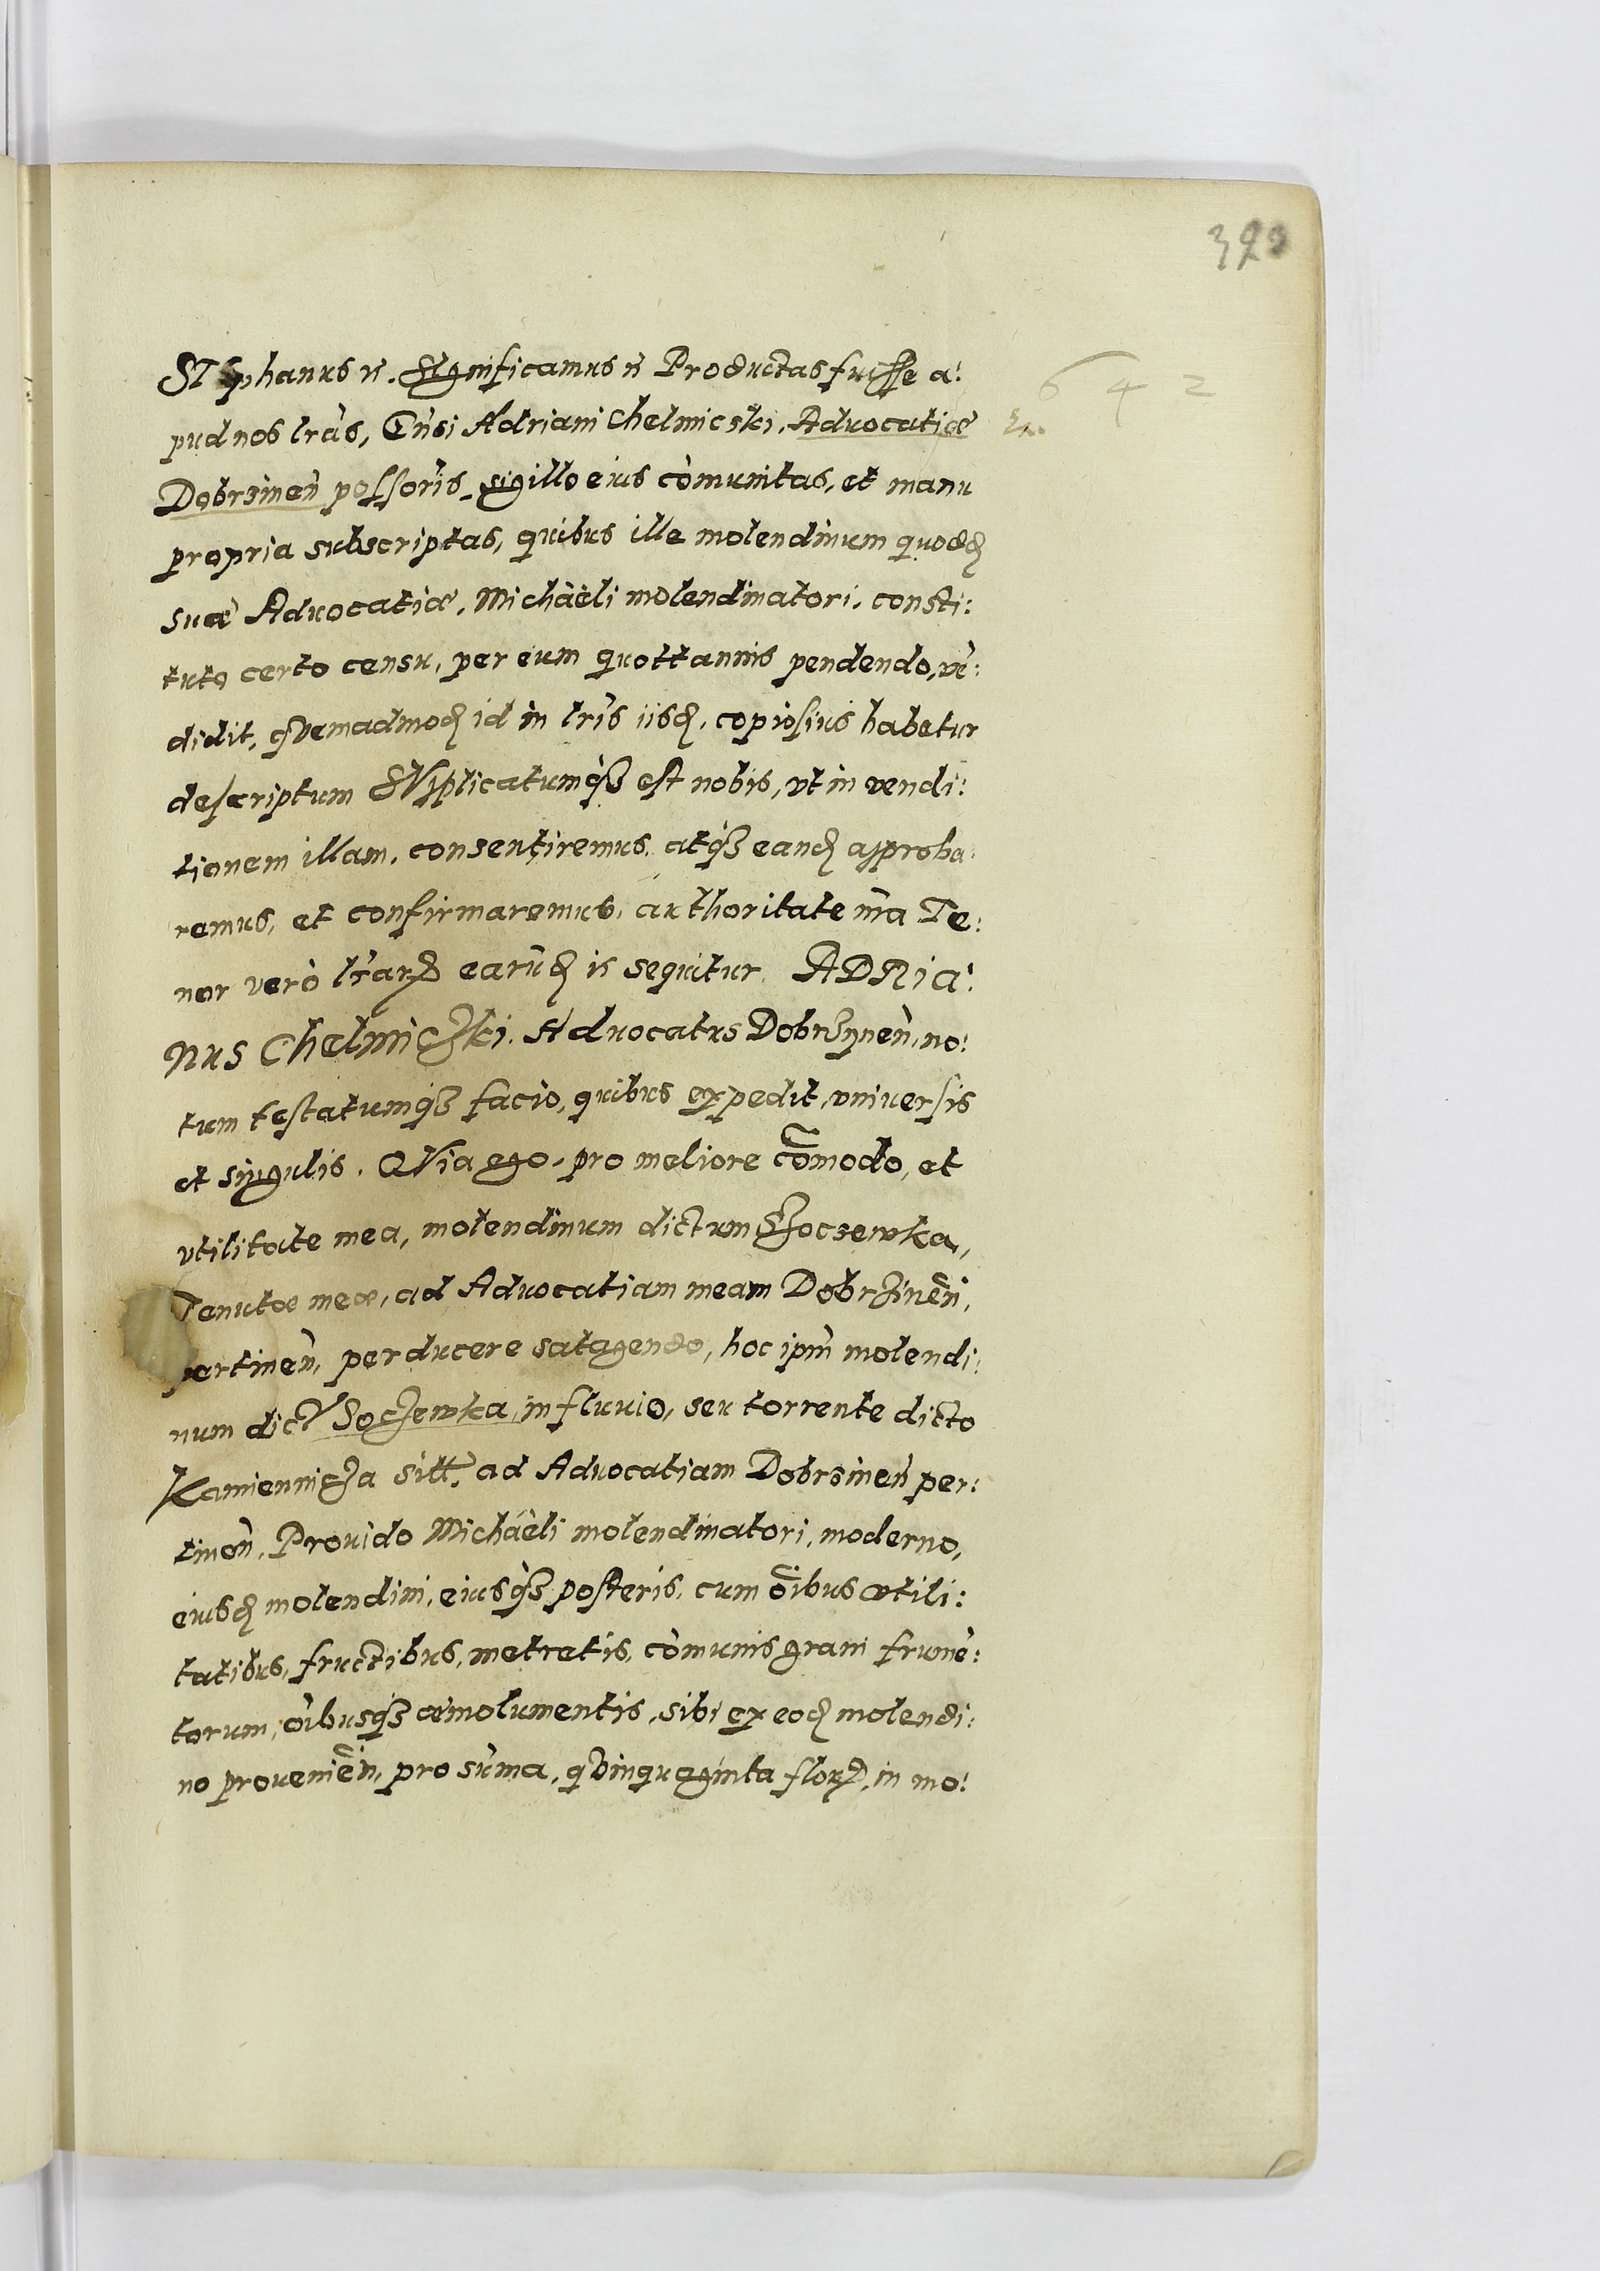 STephanus rc. Significamus rc Productas fuisse a:
pud nos lras, Gnsi Adriani Chelmicski, Advocatiæ
Dobrsinen possoris, sigillo eius comunitas, et manu
propria subscriptas, quibus ille molendinum quodd
suæ Aduocatiæ, Michàëli molendinatori, consti:
tuto certo censu, per eum quottannis pendendo, ve:
didit, qvemadmod id in lris iisd, copiosius habetur
descriptum SVpplicatumq3 est nobis, vt in vendi:
tionem illam, consentiremus, atq3 eand approba:
remus, et confirmaremus, authoritate nra Te:
nor verò lrar earud is sequitur. ADRia:
nus Chelmiczki. Aduocatus Dobrzynen, no:
tum testatumq3 facio, quibus expedit, vniuersis
et singulis. QVia ego, pro meliore comodo, et
vtilitate mea, molendinum dictum Szoczewka,
Tenutæ meæ, ad Aduocatiam meam Dobrzinen,
pertinen, perducere satagendo, hoc ipm molendi:
num dict Soczewka, in fluuio, seu torrente dicto
Kamienni cza sitt. ad Aduocatiam Dobrsinen per:
tinen, Prouido Michàëli molendinatori, moderno,
eiusd molendini, eiusq3 posteris, cum oibus vtili:
tatibus, fructibus, metretis, comunis grani frume:
torum, oibusq3 æmolumentis, sibi ex eod molendi:
no prouenien, pro suma, qvinquaginta flor, in mo: